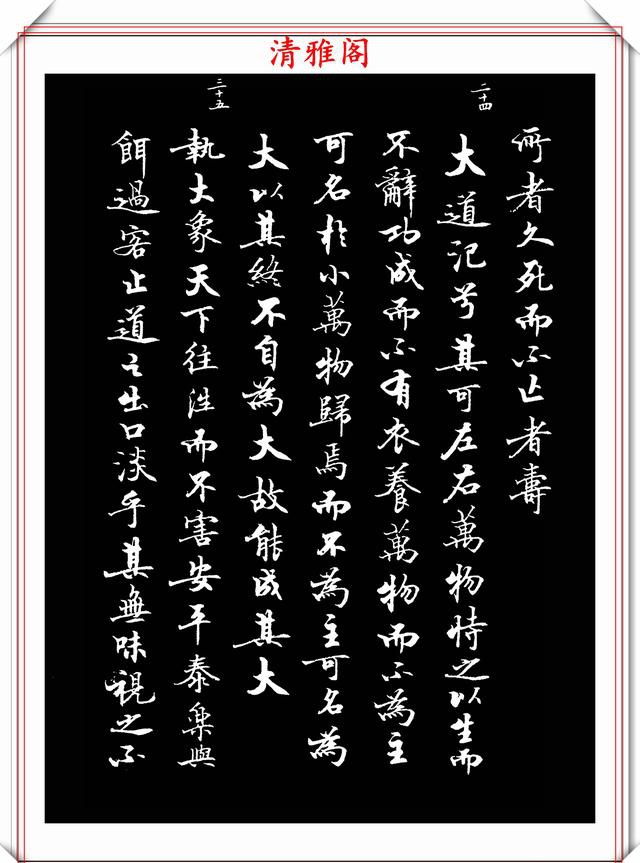 清雅阁
所者久死而不亡者壽
二十四
大道汜兮其可左右萬物恃之以生而
不辭功成而不有衣養萬物而不為主
可名於小萬物歸焉而不為主可名為
大以其終不自為大故能成其大
三十五
執大象天下往往而不害安平泰樂與
餌過客止道之出口淡乎其無味視之不